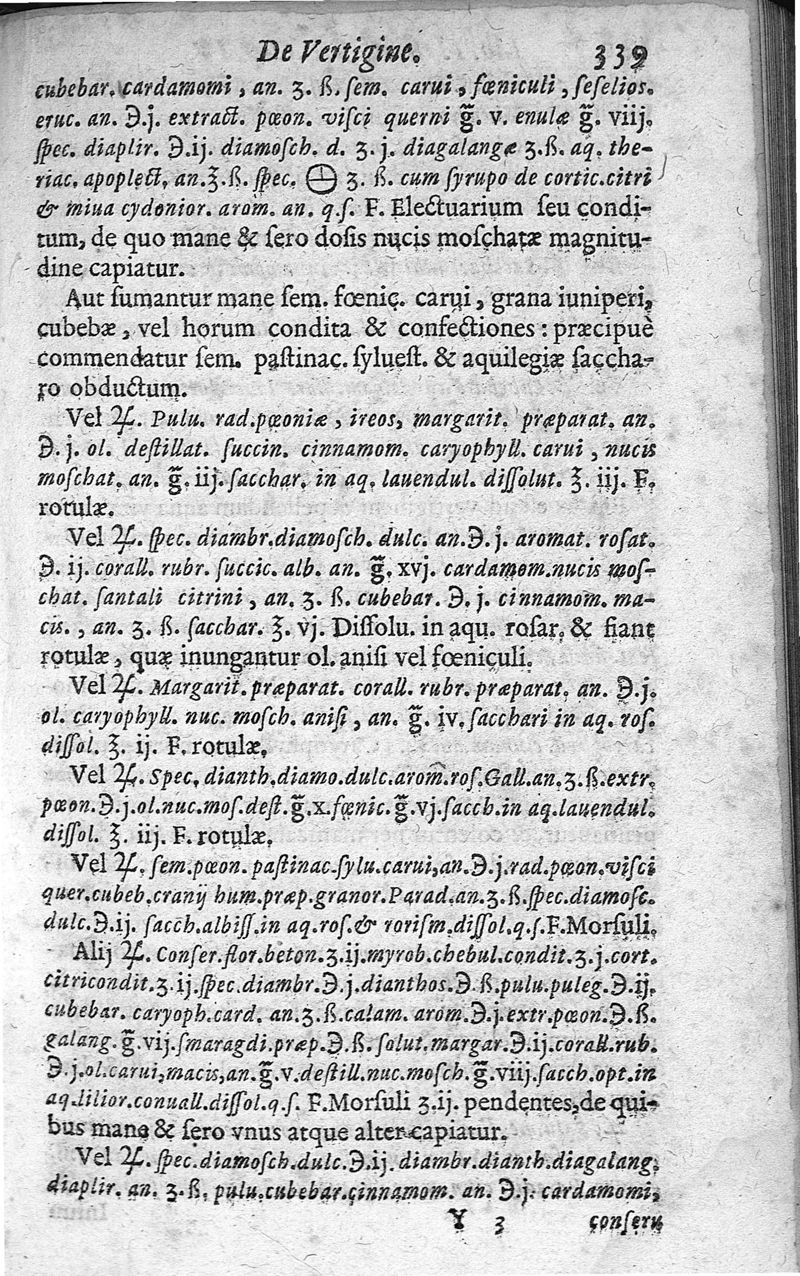 De Vertigine. 339
cubebar. cardamomi, an. ʒ. ß. ſem. carui, fœniculi, ſeſelios.
eruc. an. ℈.j. extract. pœon. viſci querni g̃. v. enulæ g̃. viij.
ſpec. diaplir. ℈.ij. diamoſch. d. ʒ. j. diagalangæ ʒ.ß. aq. the-
riac. apoplect. an.℥.ß. ſpec. 🜔 ʒ. ß. cum ſyrupo de cortic.citri
& miua cydonior. arom. an. q.ſ. F. Electuarium ſeu condi-
tum, de quo mane & ſero doſis nucis moſchatæ magnitu-
dine capiatur.
Aut ſumantur mane ſem. fœnic. carui, grana iuniperi,
cubebæ, vel horum condita & confectiones: præcipuè
commendatur ſem. paſtinac. ſylueſt. & aquilegiæ ſaccha-
ro obductum.
Vel ♃. Pulu. rad.pœoniæ, ireos, margarit. præparat. an.
℈. j. ol. deſtillat. ſuccin. cinnamom. caryophyll. carui, nucis
moſchat. an. g̃. iij. ſacchar. in aq. lauendul. diſſolut. ℥. iij. F.
rotulæ.
Vel ♃. ſpec. diambr.diamoſch. dulc. an.℈. j. aromat. roſat.
℈. ij. corall. rubr. ſuccic. alb. an. g̃. xvj. cardamom.nucis moſ-
chat. ſantali citrini, an. ʒ. ß. cubebar. ℈. j. cinnamom. ma-
cis., an. ʒ. ß. ſacchar. ℥. vj. Diſſolu. in aqu. roſar. & fiant
rotulæ, quæ inungantur ol. aniſi vel fœniculi.
Vel ♃. Margarit. præparat. corall. rubr. præparat. an. ℈.j.
ol. caryophyll. nuc. moſch. aniſi, an. g̃. iv. ſacchari in aq. roſ.
diſſol. ℥. ij. F. rotulæ.
Vel ♃. Spec. dianth.diamo.dulc.arom̃.roſ.Gall.an.ʒ.ß.extr.
pœon.℈.j.ol.nuc.moſ.deſt.g̃.x.fœnic.g̃.vj.ſacch.in aq.lauendul.
diſſol. ℥. iij. F. rotulæ.
Vel ♃. ſem.pœon. paſtinac.ſylu.carui,an.℈.j.rad.pœon.viſci
quer.cubeb.cranij hum.præp.granor.Parad.an.ʒ.ß.ſpec.diamoſc.
dulc.℈.ij. ſacch.albiſſ.in aq.roſ.& roriſm.diſſol.q.ſ.F.Morſuli.
Alij ♃. Conſer.flor.beton.ʒ.ij.myrob.chebul.condit.ʒ.j.cort.
citricondit.ʒ.ij.ſpec.diambr.℈.j.dianthos.℈.ß.pulu.puleg.℈.ij.
cubebar. caryoph.card. an.ʒ.ß.calam. arom.℈.j.extr.pœon.℈.ß.
galang.g̃.vij.ſmaragdi.præp.℈.ß. ſolut.margar.℈.ij.corall.rub.
℈.j.ol.carui,macis,an.g̃.v.deſtill.nuc.moſch.g̃.viij.ſacch.opt.in
aq.lilior.conuall.diſſol.q.ſ. F.Morſuli ʒ.ij. pendentes,de qui-
bus mane & ſero vnus atque alter capiatur.
Vel ♃. ſpec.diamoſch.dulc.℈.ij. diambr.dianth.diagalang.
diaplir. an. ʒ.ß. pulu.cubebar.cinnamom. an. ℈.j. cardamomi,
Y 3 conſeru